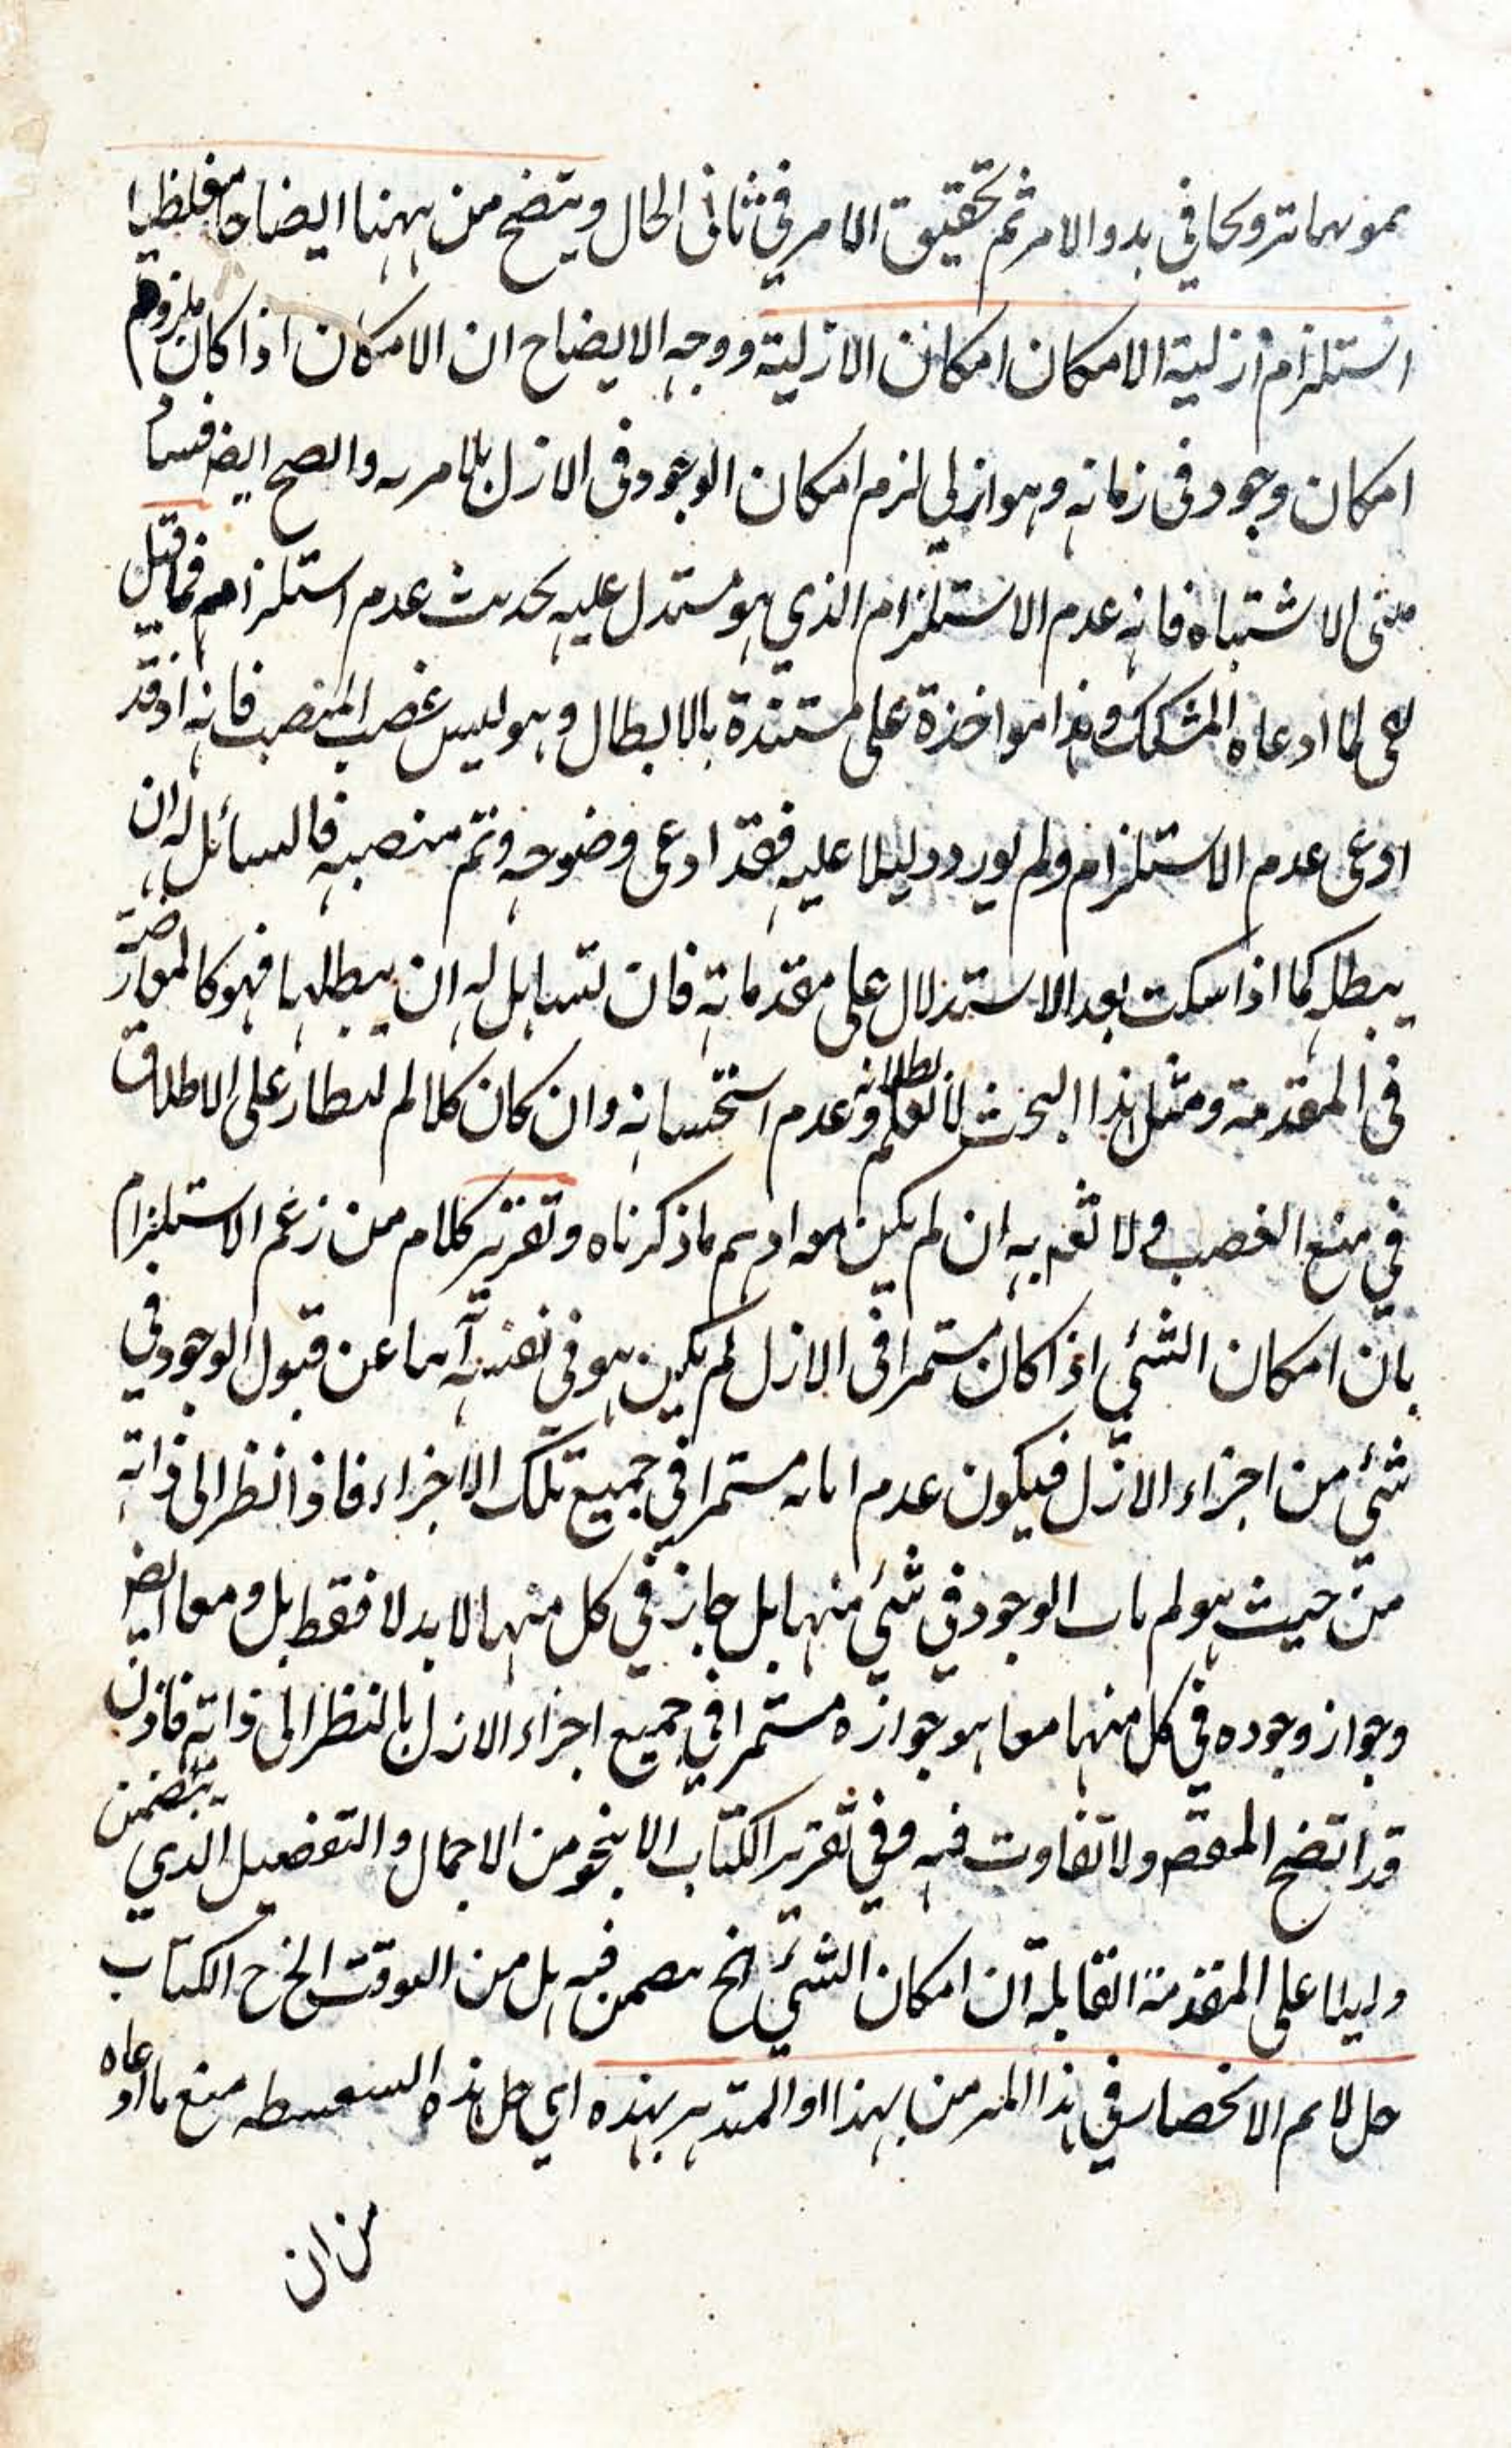 تمويها ترويجا في بدو الامر ثم تحقيق الامر في ثاني الحال ويتضح من ههنا ايضاحا
استلزام ازلية الامكان امكان الازلية ووجه الايضاح ان الامكان اذا كان
امكان وجود في زمانه وهو ازلي لزم امكان الوجود في الازل بلا مريه والصح ايض
الاشتباه فانه عدم الاستلزام الذي هو مستدل عليه بحديث عدم استلزامه فما قيل
لما ادعاه المشكك وهذا مواخذة على مستندة بالابطال وهو ليس غصب المنصب فانه اذ قد
ادعى عدم الاستلزام ولم يورد دليلا عليه فقد ادعى وضوحه وتم منصبه فالسائل له ان
يبطله كما اذا سكت بعد الاستدلال على مقدماته فان لسائل له ان يبطلها فهو كالمعارضة
في المقدمة ومثل هذا البحث لا نعلم بطلانه وعدم استحسانه وان كان كلا لم على الاطلاق
في منع الغصب ولا ثم به ان لم يكن مرادهم ما ذكرناه وتقرير كلام من زعم الاستلزام
بان امكان الشئ اذا كان مستمرا في الازل لم يكن هو في نفسه آبيا عن قبول الوجود في
شئ من اجزاء الازل فيكون عدم ابائه مستمرا في جميع تلك الاجزاء فاذا نظر الى ذاته
من حيث هو لم ياب الوجود في شئ منها بل جاز في كل منها لا بدلا فقط بل ومعا ايض
وجواز وجوده في كل منها معا هو جوازه مستمرا في جميع اجزاء الازل بالنظر الى ذاته فاذن
قد اتضح المقص ولا تفاوت فيه وفي تقرير الكتاب الا بنحو من الاجمال والتفصيل الذي يتضمن
دليلا على المقدمة القابلة ان امكان الشئ الخ فيه بل من الخ الكتاب
حل لابهم الانحصار في هذا بهذا او بهذه اي حل هذه السفسطه منع ما ادعاه
من ان